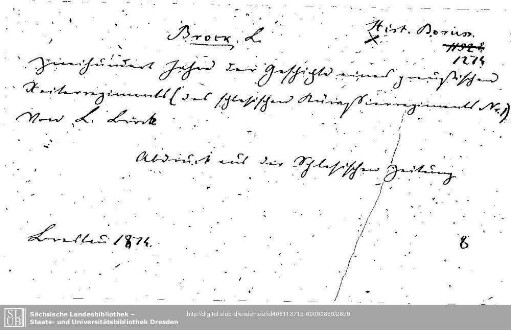 Brock, L.
Hist. Boruss.
1274
Zweihundert Jahre der Geschichte eines preußischen
Reiterregiments (des schlesischen Kürassierregiments No. 1)
Von L. Brock
Abdruck aus der Schlesischen Zeitung
Breslau 1874.
8
Sächsische Landesbibliothek –
Staats- und Universitätsbibliothek Dresden